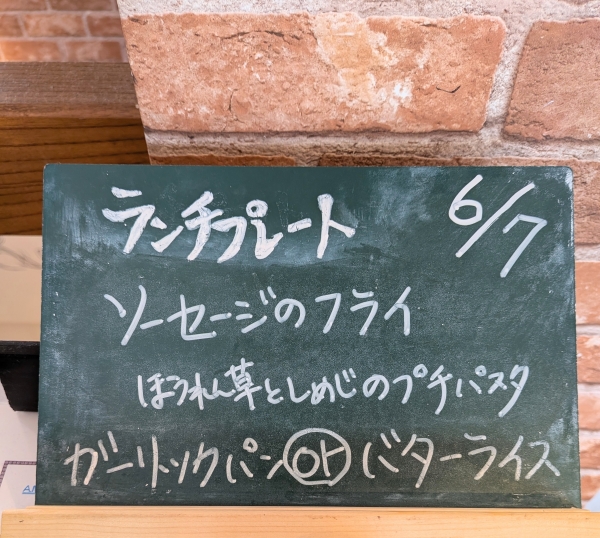 ランチプレート 6/7
ソーセージのフライ
ほうれん草としめじのプチパスタ
ガーリックパン or バターライス